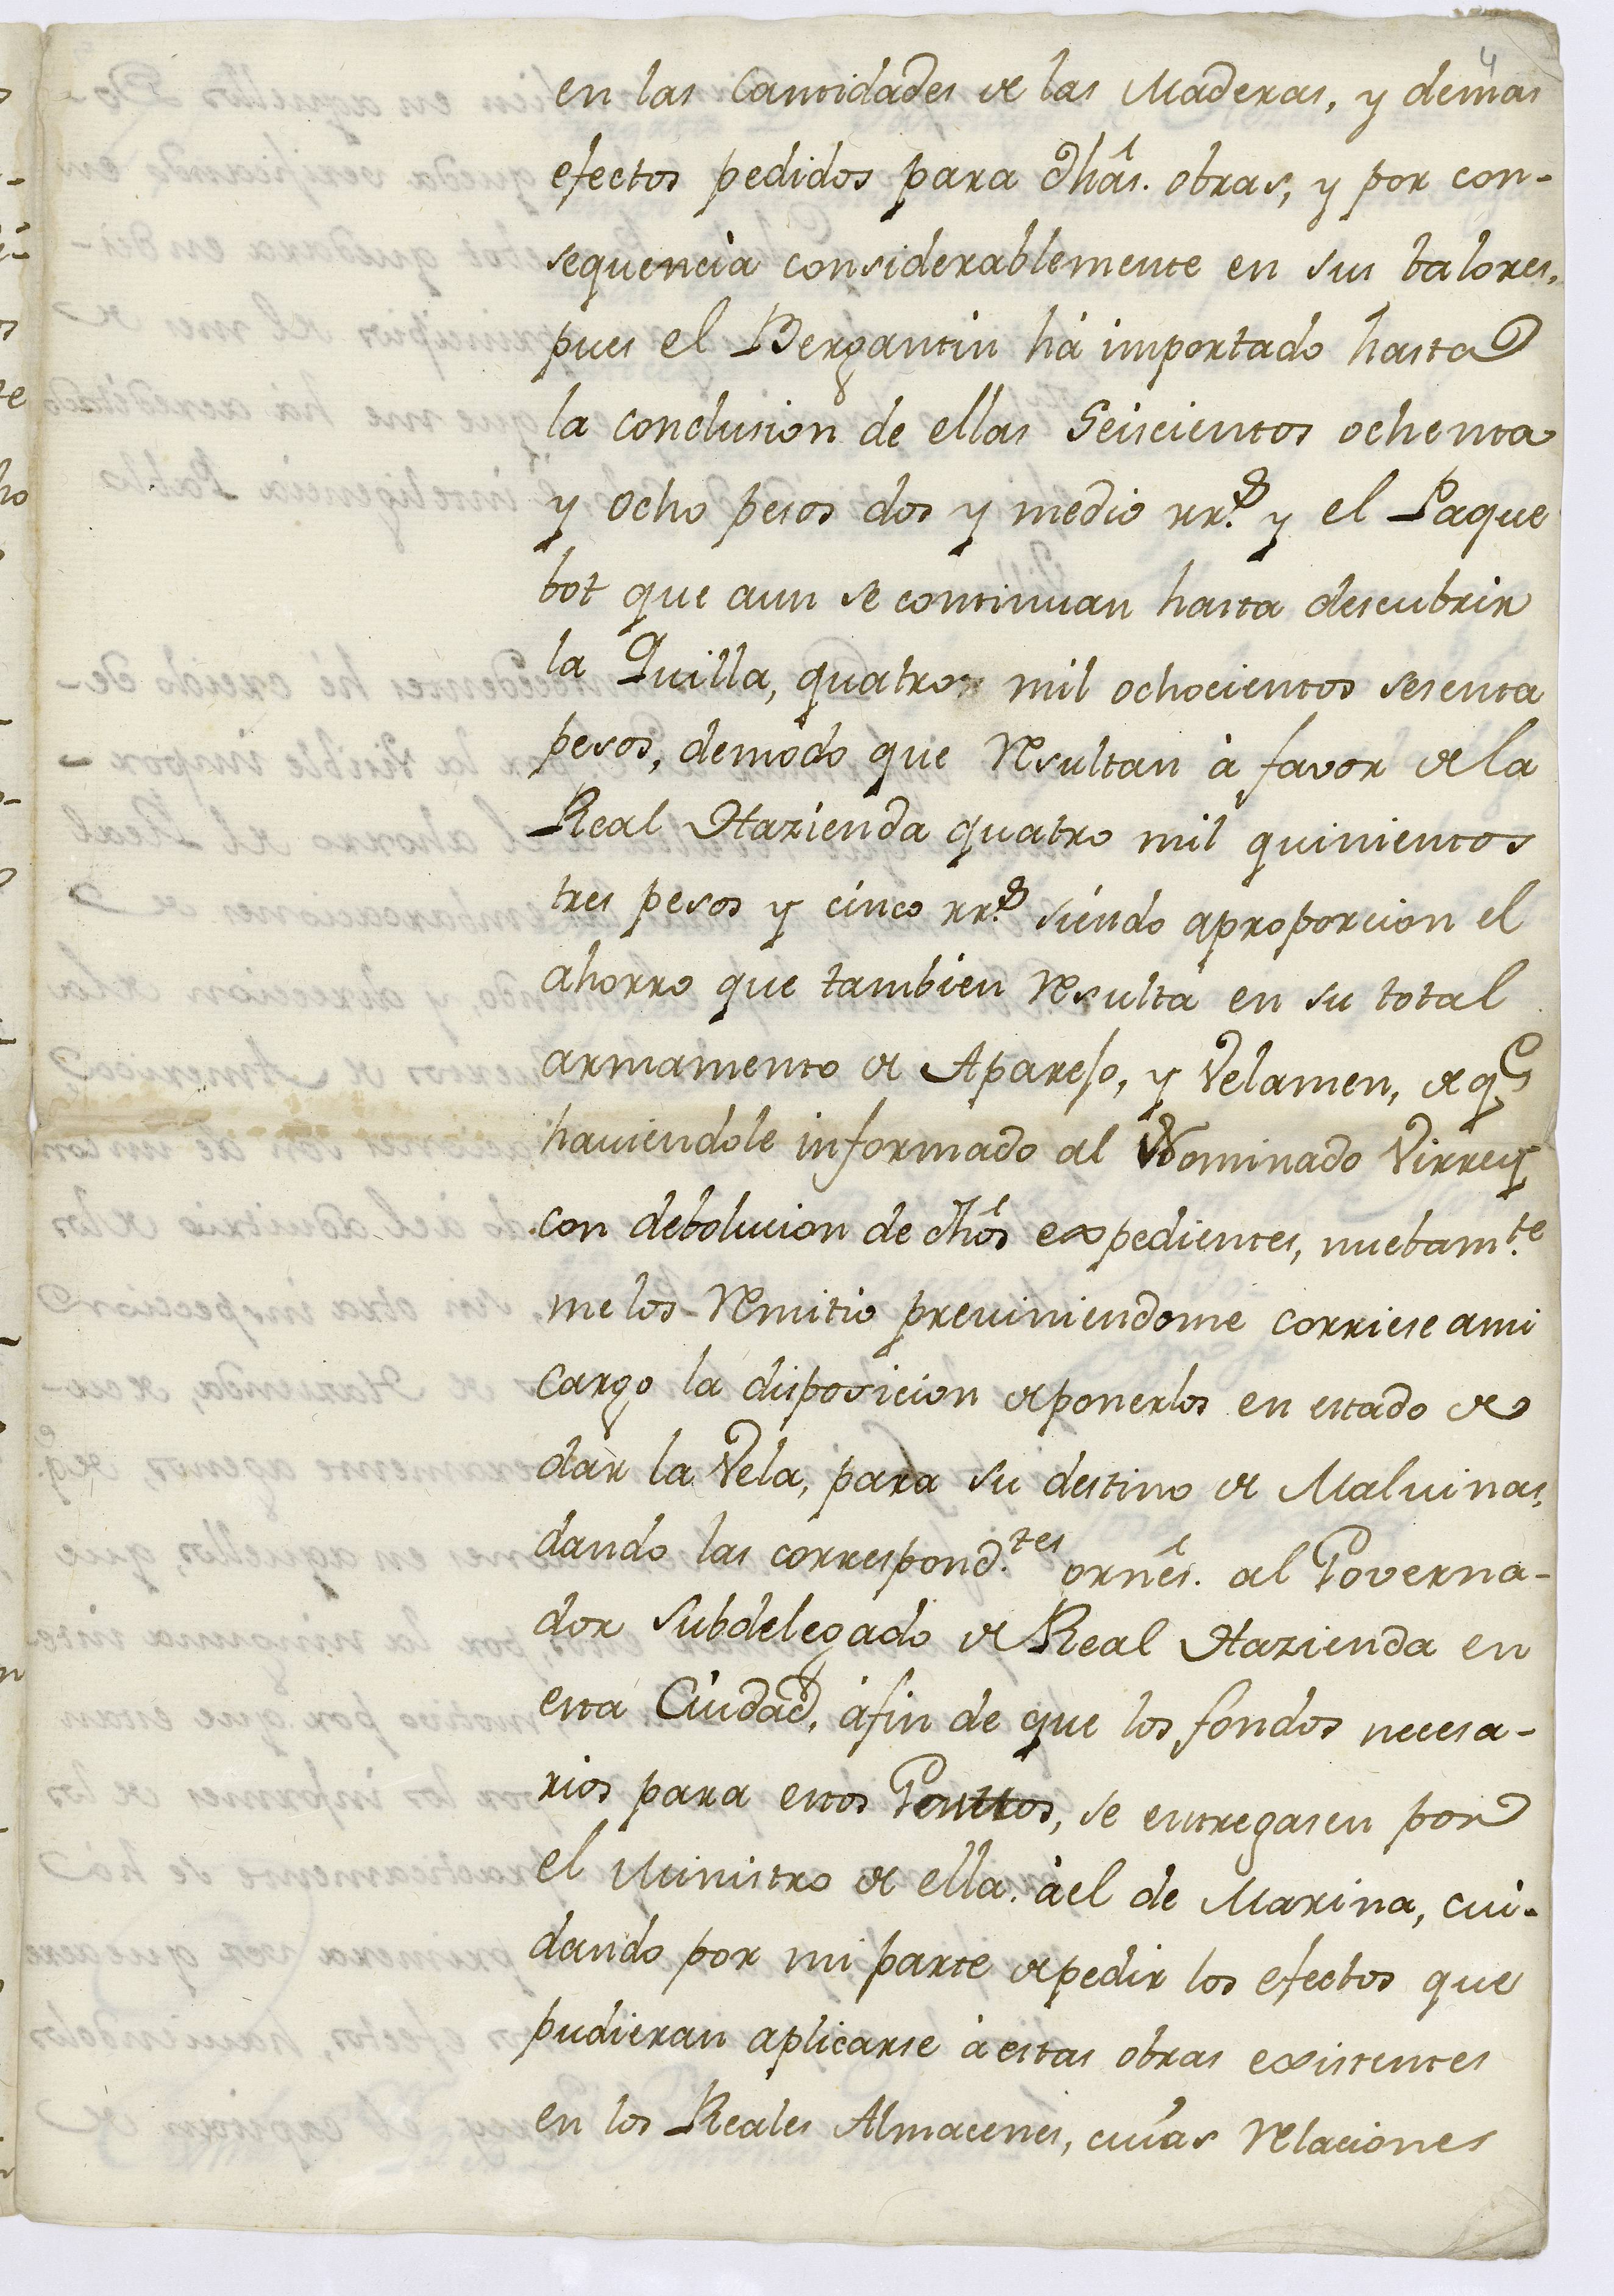 4
en las Cantidades de las Maderas, y demas
efectos pedidos para dhas. obras, y por con-
sequencia considerablemente en sus balores,
pues el Bergantin há importado hasta
la conclusion de ellas Seiscientos ochenta
y ocho pesos dos y medio rr.s y el Paque
bot que aun se continuan hasta descubrir
la Quilla, quatro mil ochocientos sesenta
pesos, demodo que Resultan à favor de la
Real Hazienda quatro mil quinientos
tres pesos y cinco rr.s siendo aproporcion el
ahorro que tambien Resulta en su total
armamento de Aparejo, y Velamen, de q.e
haviendole informado al Nominado Virrey
con debolucion de dhos expedientes, nuebam.te
me los Remitio previniendome corriese ami
cargo la disposicion de ponerlos en estado de
dar la Vela, para su destino de Malvinas,
dando las correspond.tes ornês. al Governa-
dor Subdelegado de Real Hazienda en
esta Ciudad, àfin de que los fondos necesa-
rios para estos Gasttos, se entregasen por
el Ministro de ella. àel de Marina, cui-
dando por mi parte de pedir los efectos que
pudieran aplicarse à estas obras existentes
en los Reales Almacenes, cuias Relaciones